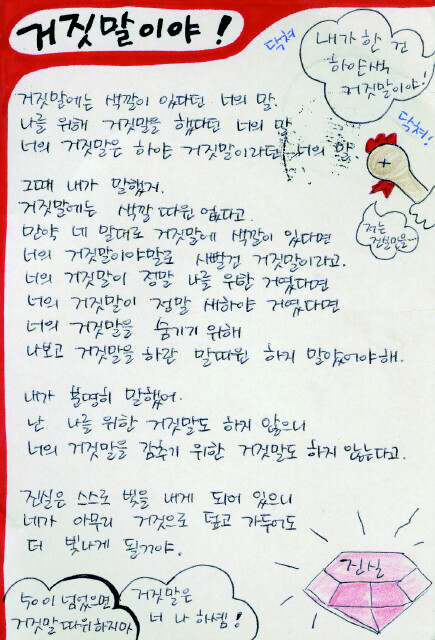 거짓말이야!
닥쳐
내가 한 건
하얀색
거짓말이야!
닥쳐!
거짓말에는 색깔이 있다던 너의 말.
나를 위해 거짓말을 했다던 너의 말
너의 거짓말은 하얀 거짓말이라던 너의 말.
저는
결백해요...
그때 내가 말했지.
거짓말에는 색깔 따윈 없다고.
만약 네 말대로 거짓말에 색깔이 있다면
너의 거짓말이야말로 시뻘건 거짓말이라고.
너의 거짓말이 정말 나를 위한 거였다면
너의 거짓말이 정말 새하얀 거였다면
너의 거짓말을 숨기기 위해
나보고 거짓말을 하란 말따윈 하지 말았어야해.
내가 분명히 말했어.
난 나를 위한 거짓말도 하지 않으니
너의 거짓말을 감추기 위한 거짓말도 하지 않는다고.
진실은 스스로 빛을 내게 되어 있으니
네가 아무리 거짓으로 덮고 가두어도
더 빛나게 될거야.
진실
50이 넘었으면
거짓말 따위 하지마
거짓말은
너 나 하셈!